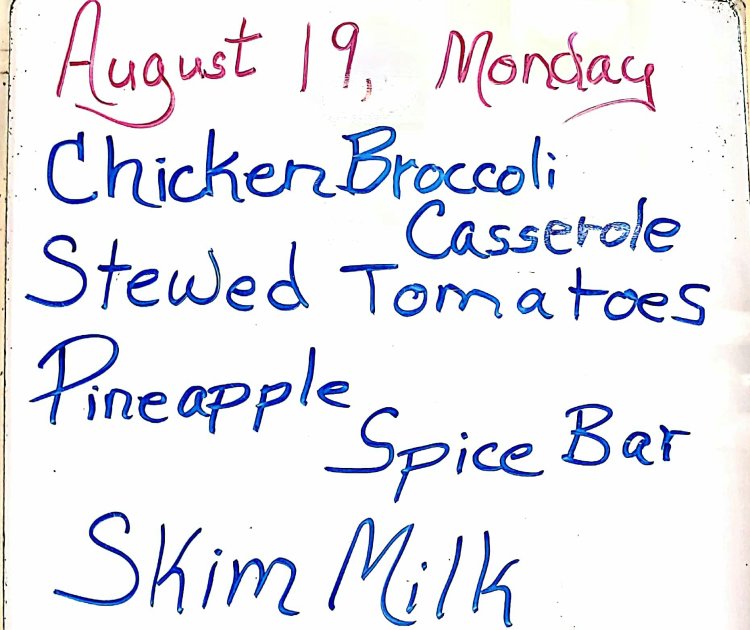 August 19, Monday
Chicken Broccoli
Casserole
Stewed Tomatoes
Pineapple
Spice Bar
Skim Milk